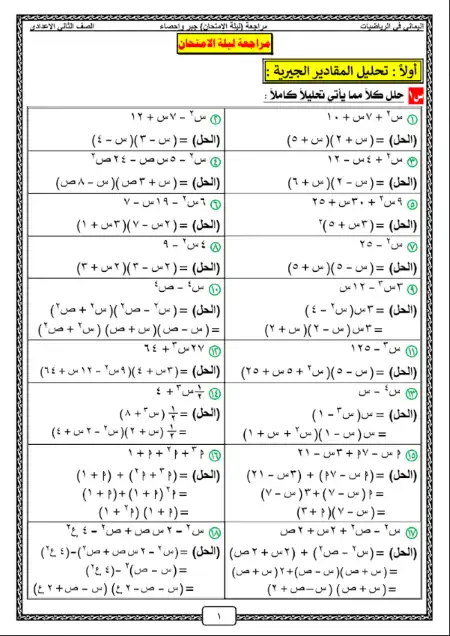 اليماني في الرياضيات
مراجعة (ليلة الامتحان) جبر واحصاء
الصف الثاني الاعدادى
مراجعة ليلة الامتحان
أولاً : تحليل المقادير الجبرية :
س١ حلل كلاً مما يأتى تحليلاً كاملاً :
١ س٢ + ٧س + ١٠
(الحل) = (س + ٢)(س + ٥)
٢ س٢ − ٧س + ١٢
(الحل) = (س − ٣)(س − ٤)
٣ س٢ + ٤س − ١٢
(الحل) = (س − ٢)(س + ٦)
٤ س٢ − ٥س ص − ٢٤ص٢
(الحل) = (س + ٣ص)(س − ٨ص)
٥ ٩س٢ + ٣٠س + ٢٥
(الحل) = (٣س + ٥)٢
٦ ٦س٢ − ١٩س − ٧
(الحل) = (٢س − ٧)(٣س + ١)
٧ س٢ − ٢٥
(الحل) = (س − ٥)(س + ٥)
٨ ٤س٢ − ٩
(الحل) = (٢س − ٣)(٢س + ٣)
٩ ٣س٣ − ١٢س
(الحل) = ٣س(س٢ − ٤)
= ٣س(س − ٢)(س + ٢)
١٠ س٤ − ص٤
(الحل) = (س٢ − ص٢)(س٢ + ص٢)
= (س − ص)(س + ص) (س٢ + ص٢)
١١ س٣ − ١٢٥
(الحل) = (س − ٥)(س٢ + ٥س + ٢٥)
١٢ ٢٧س٣ + ٦٤
(الحل) = (٣س + ٤)(٩س٢ − ١٢س + ٦٤)
١٣ س٤ − س
(الحل) = س(س٣ − ١)
= س(س − ١)(س٢ + س + ١)
١٤ ١/٢ س٣ + ٤
(الحل) = ١/٢ (س٣ + ٨)
= ١/٢ (س + ٢)(س٢ − ٢س + ٤)
١٥ م س − ٧م + ٣س − ٢١
(الحل) = (م س − ٧م) + (٣س − ٢١)
= م (س − ٧) + ٣(س − ٧)
= (س − ٧)(م + ٣)
١٦ م٣ + م٢ + م + ١
(الحل) = (م٣ + م٢) + (م + ١)
= م٢ (م + ١) + (م + ١)
= (م + ١) (م٢ + ١)
١٧ س٢ − ص٢ + ٢س + ٢ص
(الحل) = (س٢ − ص٢) + (٢س + ٢ص)
= (س + ص)(س − ص) + ٢(س + ص)
= (س + ص) (س − ص + ٢)
١٨ س٢ − ٢س ص + ص٢ − ٤ع٢
(الحل) = (س٢ − ٢س ص + ص٢) − (٤ع٢)
= (س − ص)٢ − (٤ع٢)
= (س − ص − ٢ع) (س − ص + ٢ع)
١